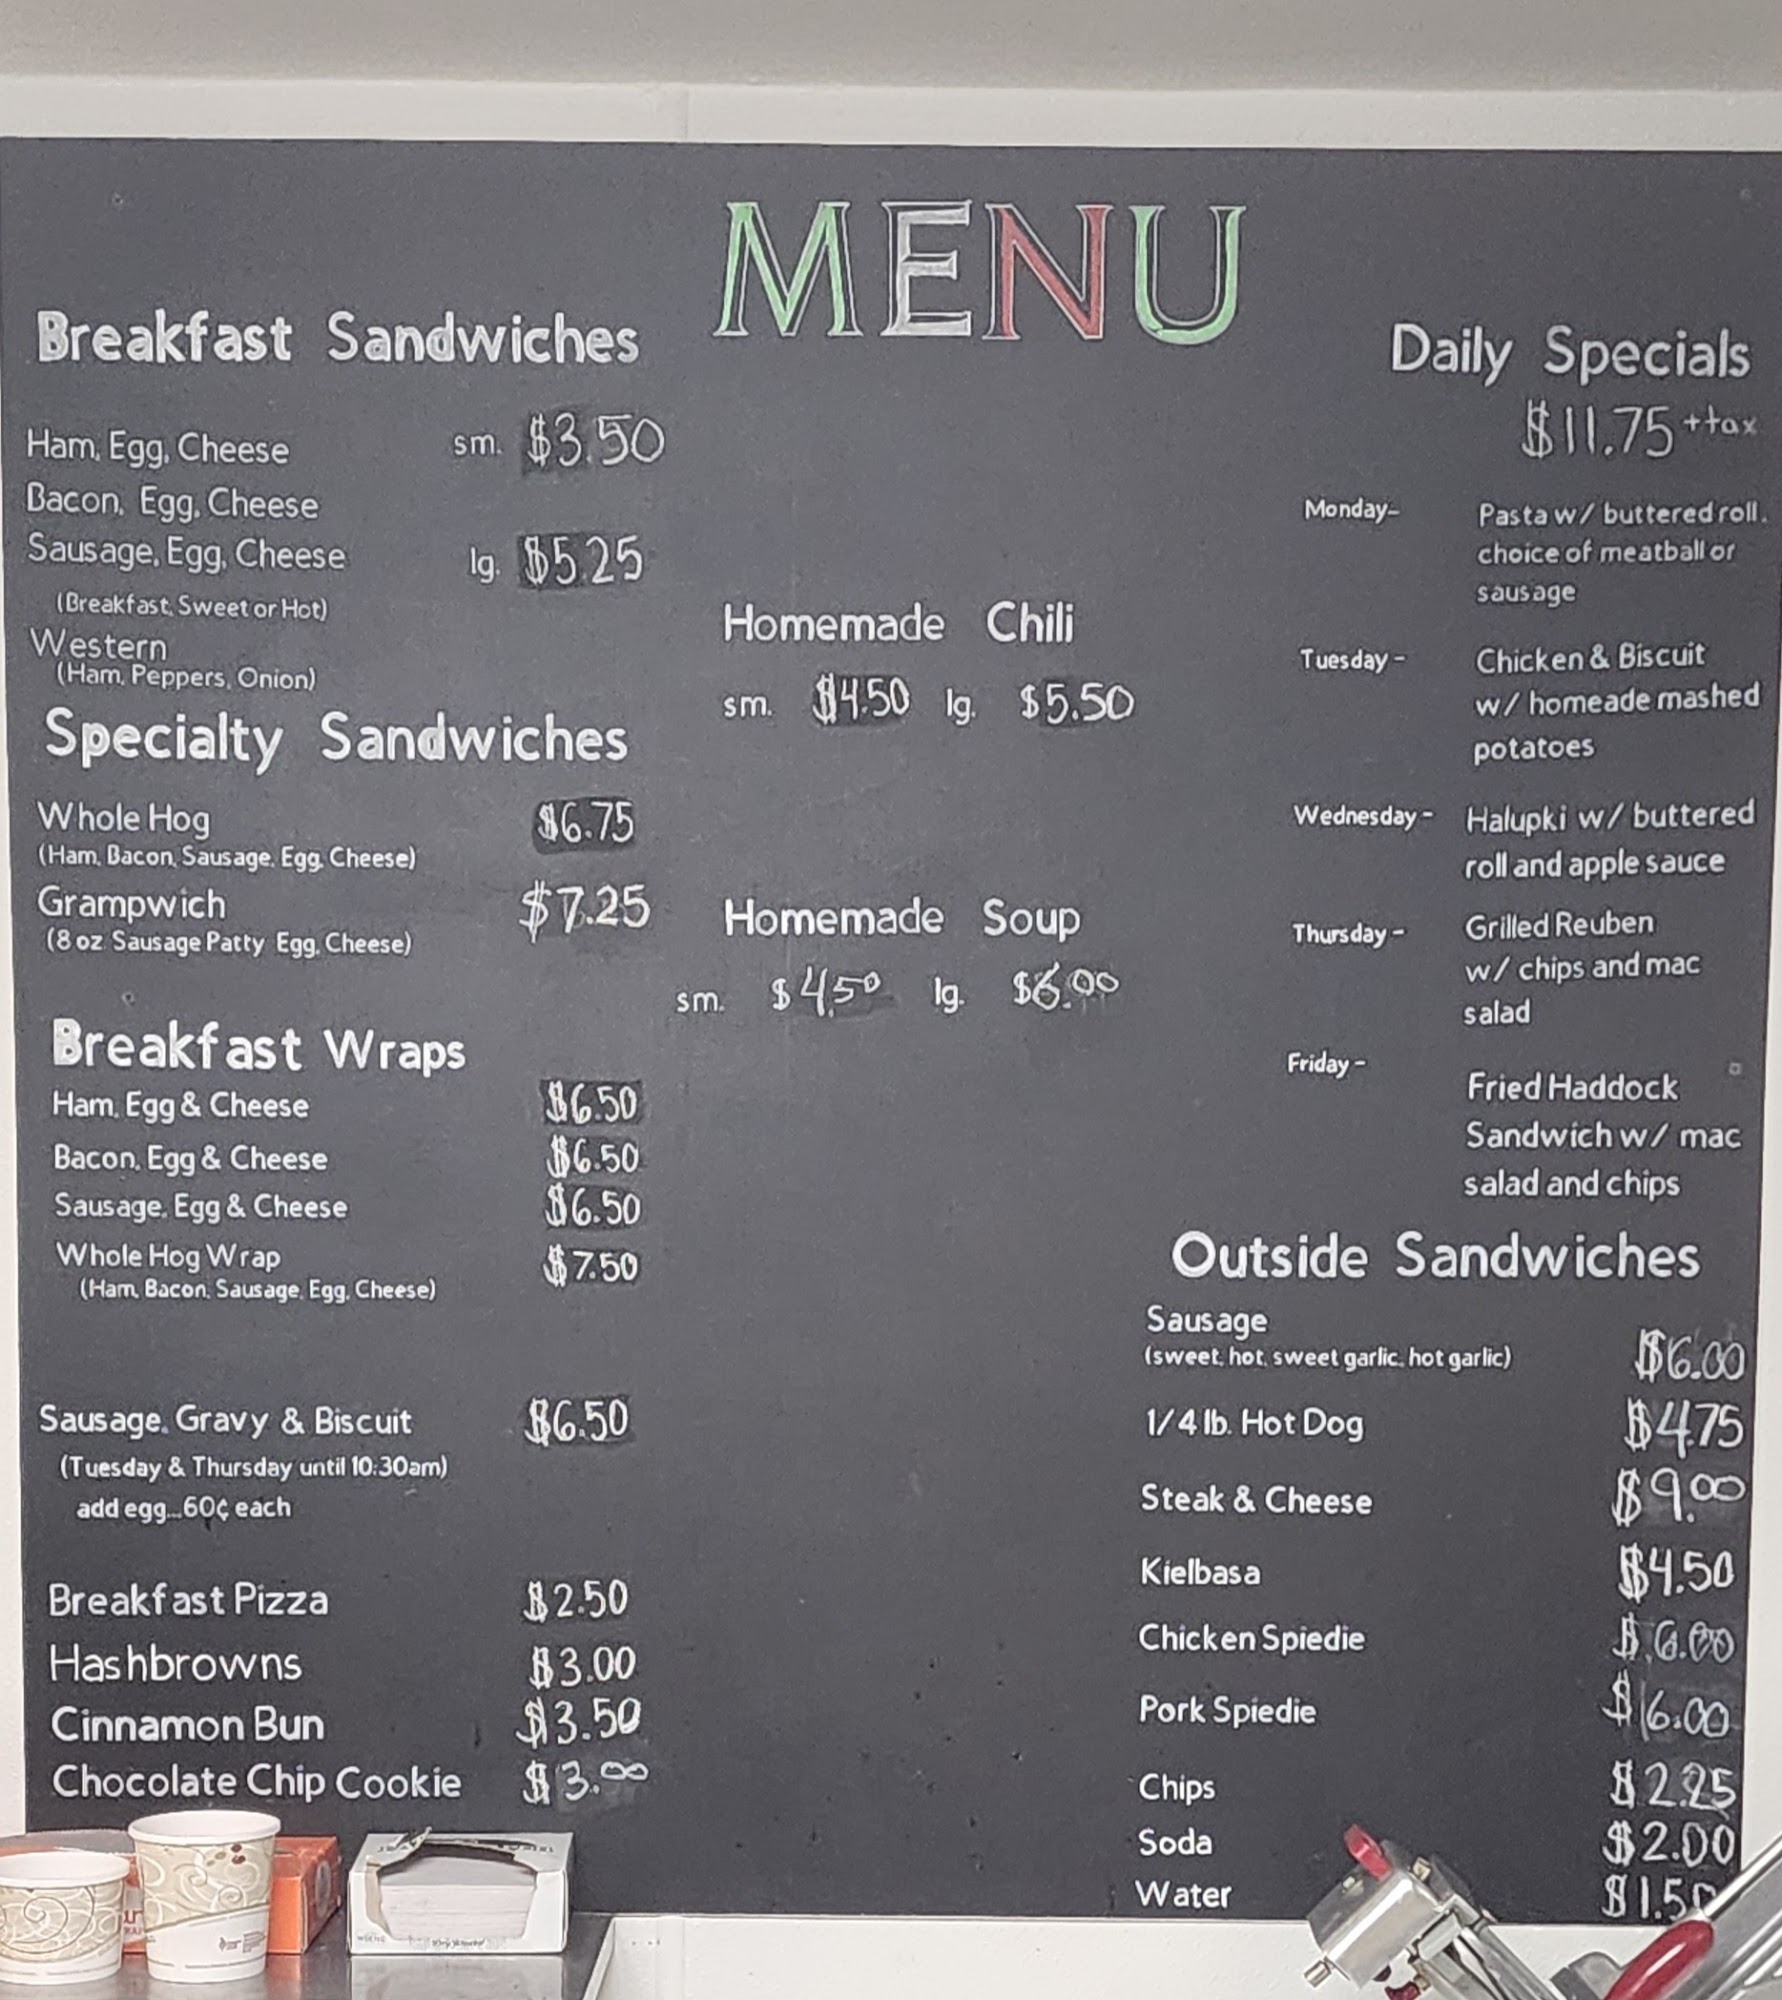 MENU
Breakfast Sandwiches
Ham, Egg, Cheese sm. $3.50
Bacon, Egg, Cheese
Sausage, Egg, Cheese lg. $5.25
(Breakfast, Sweet or Hot)
Western
(Ham, Peppers, Onion)
Specialty Sandwiches
Whole Hog $6.75
(Ham, Bacon, Sausage, Egg, Cheese)
Grampwich $7.25
(8 oz Sausage Patty Egg, Cheese)
Breakfast Wraps
Ham, Egg & Cheese $6.50
Bacon, Egg & Cheese $6.50
Sausage, Egg & Cheese $6.50
Whole Hog Wrap $7.50
(Ham, Bacon, Sausage, Egg, Cheese)
Sausage, Gravy & Biscuit $6.50
(Tuesday & Thursday until 10:30am)
add egg...60¢ each
Breakfast Pizza $2.50
Hashbrowns $3.00
Cinnamon Bun $3.50
Chocolate Chip Cookie $3.00
Homemade Chili
sm. $4.50 lg. $5.50
Homemade Soup
sm. $4.50 lg. $6.00
Daily Specials
$11.75 +tax
Monday- Pasta w/ buttered roll,
choice of meatball or
sausage
Tuesday - Chicken & Biscuit
w/ homeade mashed
potatoes
Wednesday - Halupki w/ buttered
roll and apple sauce
Thursday - Grilled Reuben
w/ chips and mac
salad
Friday - Fried Haddock
Sandwich w/ mac
salad and chips
Outside Sandwiches
Sausage
(sweet, hot, sweet garlic, hot garlic) $6.00
1/4 lb. Hot Dog $4.75
Steak & Cheese $9.00
Kielbasa $4.50
Chicken Spiedie $6.00
Pork Spiedie $6.00
Chips $2.25
Soda $2.00
Water $1.50